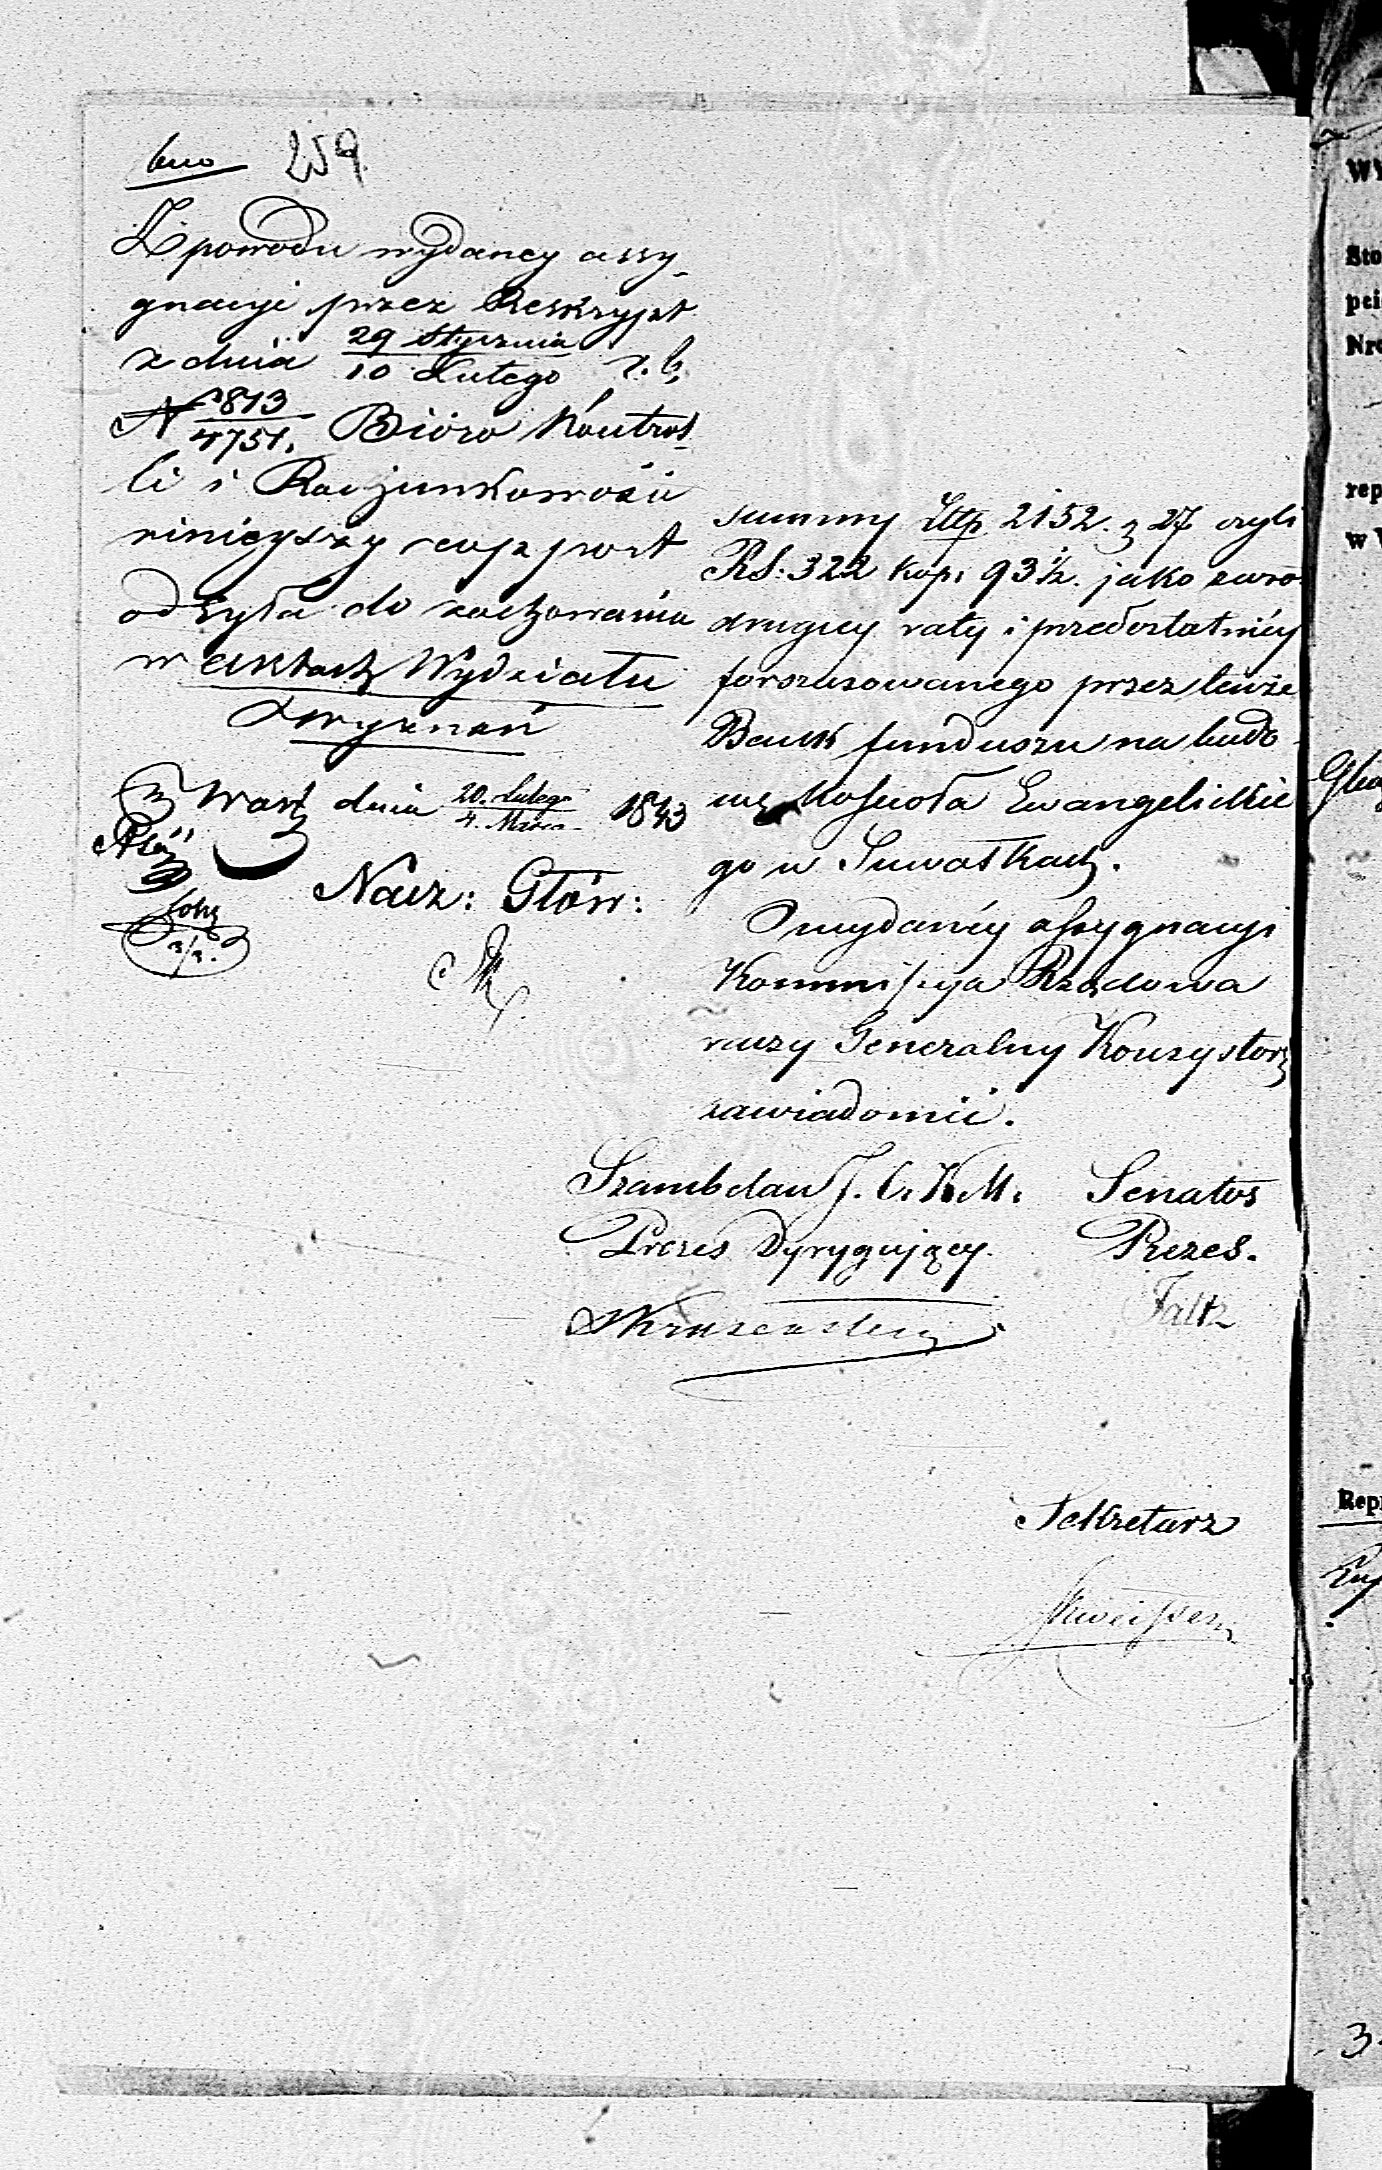 259
Z powodu wydaney assy-
gnacyi przez Reskrypt
z dnia 29 Stycznia / 10 Lutego r. b.
N 813 / 4751. Biöro Kontrol-
li i Rachunkowości
niniejszy rapport
odsyła do zachowania
w aktach Wydziału
Wyznań
Warsz dnia 20. Lutego / 4. Marca 1843
Nacz: Głów:
summy Złtp 2152. g 27 czyli
RS: 322 kop: 93 ½. jako zwro
drugiey raty i przedostatniéy
forszusowanego przez tenże
Bank funduszu na budo-
wę Kościoła Ewangelickie
go w Suwałkach.
O wydaniéy assygnacyi
Kommissya Rządowa
raczy Generalny Konsystorz
zawiadomić.
Szambelan J. C. K. M. Senator
Prezes Dyrygujący. Prezes.
Faltz
Sekretarz
WY
Sto
pei
Nro
rep
w
Rep
3